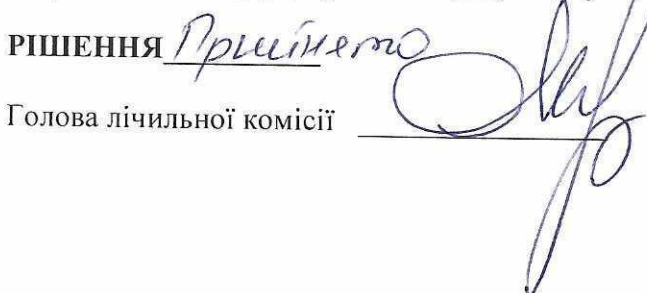 РІШЕННЯ Прийнято
Голова лічильної комісії